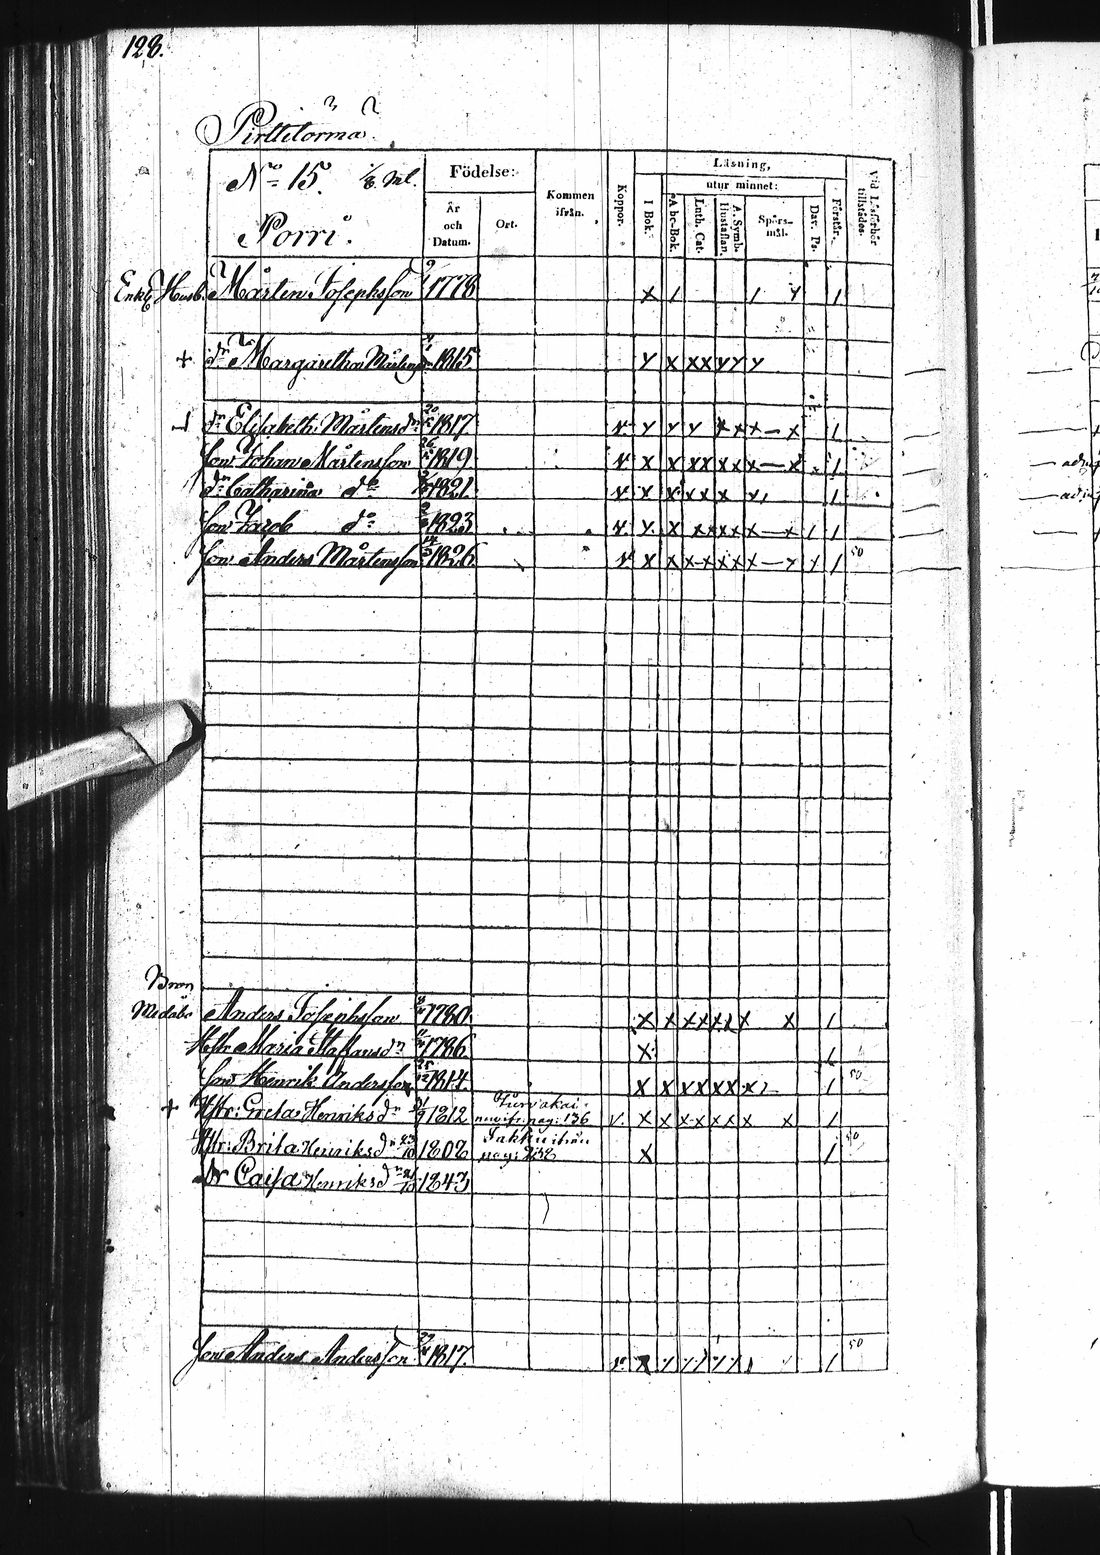 128.
Pirttitörmä
No 15. 1/8 Ml.
Porri.
Födelse:
År och Datum.
Ort.
Kommen ifrån.
Koppor.
Läsning,
utur minnet:
I Bok.
A bc-Bok.
Luth. Cat.
A. Symb. Hustaflan.
Spörs-mål.
Dav. Ps.
Förstår.
Vid Läsförhör tillstädes.
Enkl. Husb. Mårten Josephsson 1778 x 1 1 y 1
+ dr Margaretha 1815 y x x x y y y
dr Elisabeth Mårtensdr 1817 v y y y x x x — x 1
Son Johan Mårtensson 1819 v x x x x x x x — x 1
dr Catharina do 1821 v x x x x x 1
Son Jacob do 1823 v y x x x x x x x — x 1 1
Son Anders Mårtensson 1826 v x x x x x x x x — y y 1 50
Bron
Anders Josephsson 1780 x x x x x x x x x 1
Hstr Maria Staffansdr 1786 x 1
Son Henrik Andersson 1814 x x x x x x x 1 50
+ Hstr: Greta Henriksdr 1812 pag: 136 v. x x x x x x x x 1
Hstr: Brita Henriksdr 23/10 1808 pag: x 1 50
dr Caisa Henriksdr 1843
Son Anders Andersson 1817 v x y y y y y 1 1 50